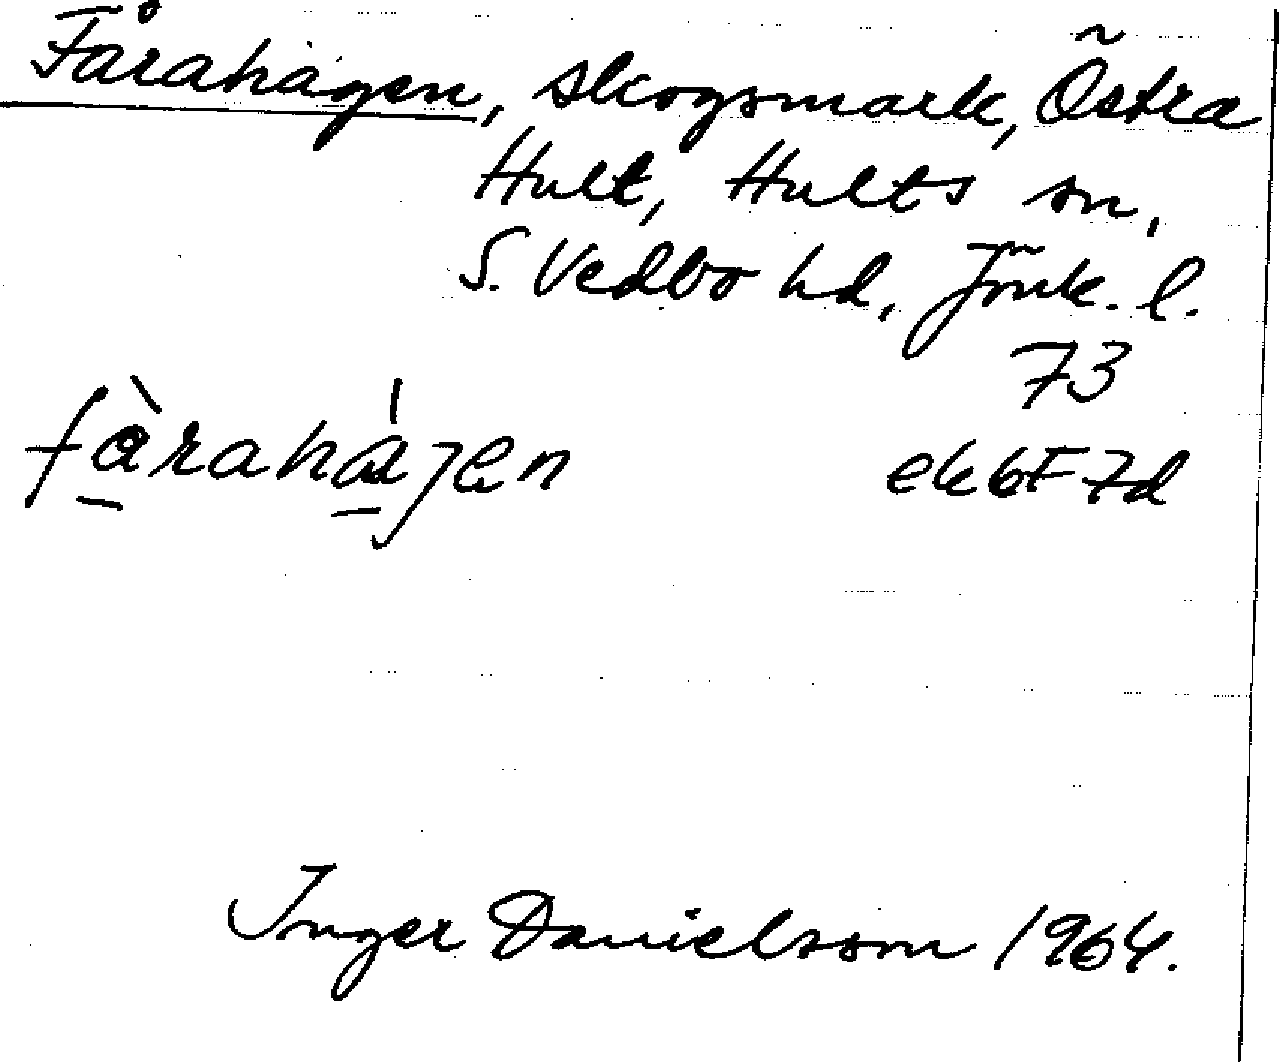 Fårahagen, skogsmark, Östra
Hult, Hults sn,
S. Vedbo hd, Jönk. l.
73
fàrahágen ekbF7d
Inger Danielsson 1964.